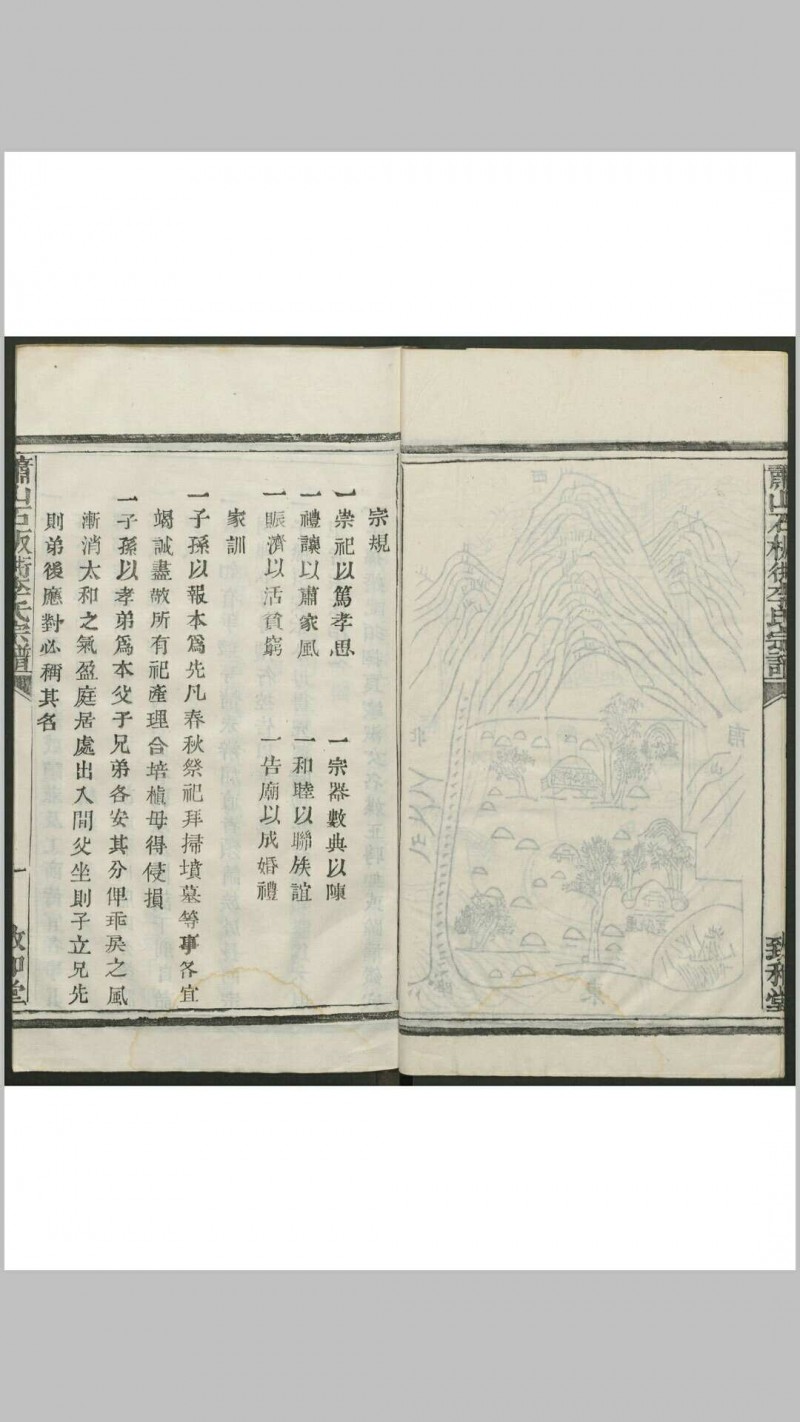 蕭山石板街李氏宗譜
致和堂
西
南
北
東
山
宗規
一崇祀以篤孝思　一宗器數典以陳
一禮讓以肅家風　一和睦以聯族誼
一賑濟以活貧窮　一告廟以成婚禮
家訓
一子孫以報本爲先凡春秋祭祀拜掃墳墓等事各宜
竭誠盡敬所有祀產理合培植毋得侵損
一子孫以孝弟爲本父子兄弟各安其分俾乖戾之風
漸消太和之氣盈庭居處出入間父坐則子立兄先
則弟後應對必稱其名
蕭山石板街李氏宗譜
一
致和堂